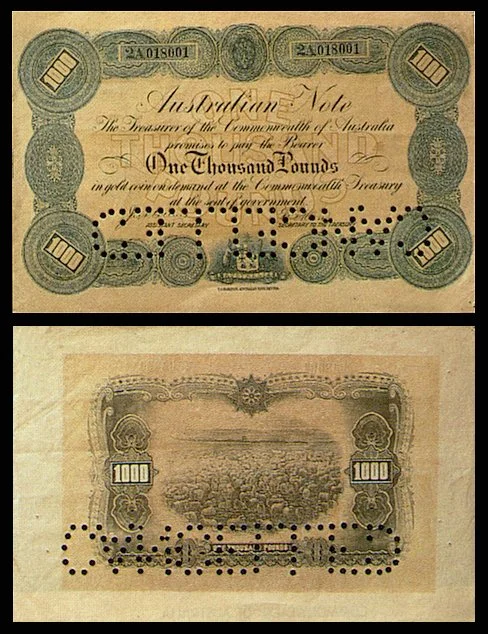 1000 2A018001 2A018001 1000
Australian Note
The Treasurer of the Commonwealth of Australia
promises to pay the Bearer
One Thousand Pounds
in gold coin on demand at the Commonwealth Treasury
at the seat of government.
ASSISTANT SECRETARY SECRETARY TO THE TREASURY
1000 1000
ONE
THOUSAND
POUNDS
1000 1000
ONE THOUSAND POUNDS